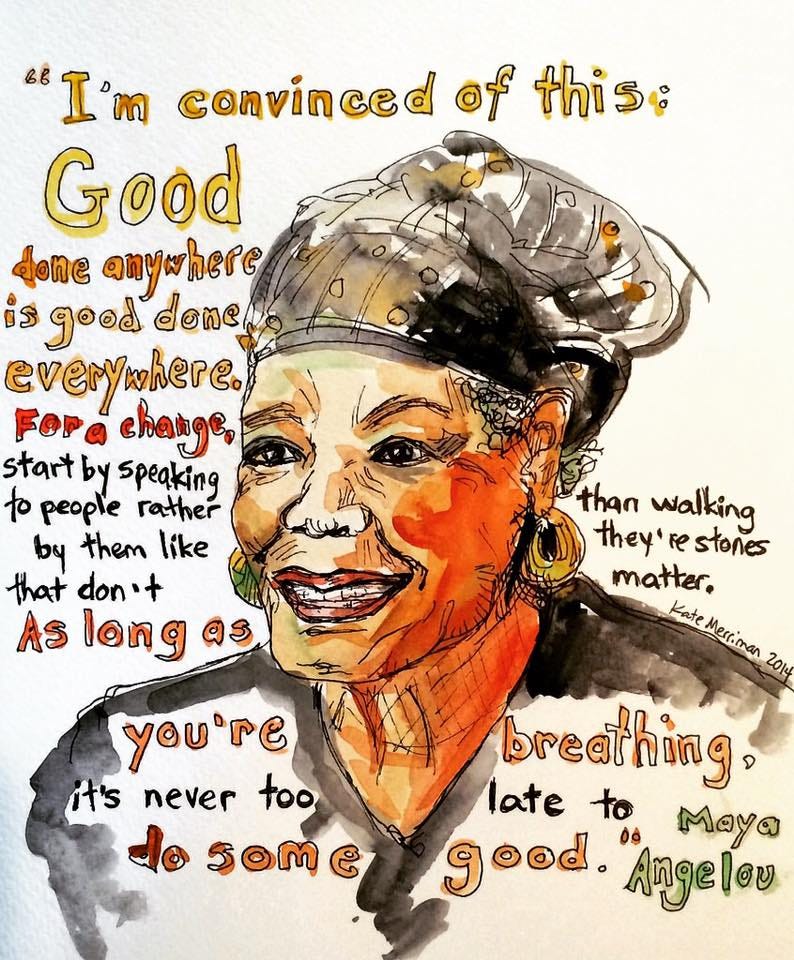 "I'm convinced of this:
Good
done anywhere
is good done
everywhere.
For a change,
start by speaking
to people rather than walking
by them like they're stones
that don't matter.
As long as
you're breathing,
it's never too late to
do some good."
Maya
Angelou
Kate Merriman 2014